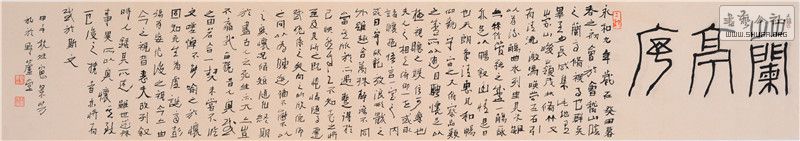 蘭
亭
序
永和九年歲在癸丑暮
春之初會于會稽山陰
之蘭亭脩禊事也群賢
畢至少長咸集此地有
崇山峻領茂林脩竹又
有清流激湍映帶左右引
以為流觴曲水列坐其次雖
無絲竹管弦之盛一觴一詠
亦足以暢敘幽情是日
也天朗氣清惠風和暢
仰觀宇宙之大俯察品類
之盛所以遊目騁懷足以
極視聽之娛信可樂也
夫人之相與俯仰一世或取
諸懷抱悟言一室之內
或因寄所託放浪形骸之
外雖趣舍萬殊靜躁不同
當其欣於所遇暫得於
己快然自足不知老之將至
及其所之既惓情隨事遷
感慨係之矣向之所欣俛仰
之間以為陳迹猶不能不以
之興懷況脩短隨化終期
於盡古人云死生亦大矣豈
不痛哉每攬昔人興感
之由若合一契未嘗不臨
文嗟悼不能喻之於懷
固知一死生為虛誕齊彭
殤為妄作後之視今亦由
今之視昔悲夫故列敘
時人錄其所述雖世殊
事異所以興懷其致
一也後之攬者亦將有
感於斯文
甲午